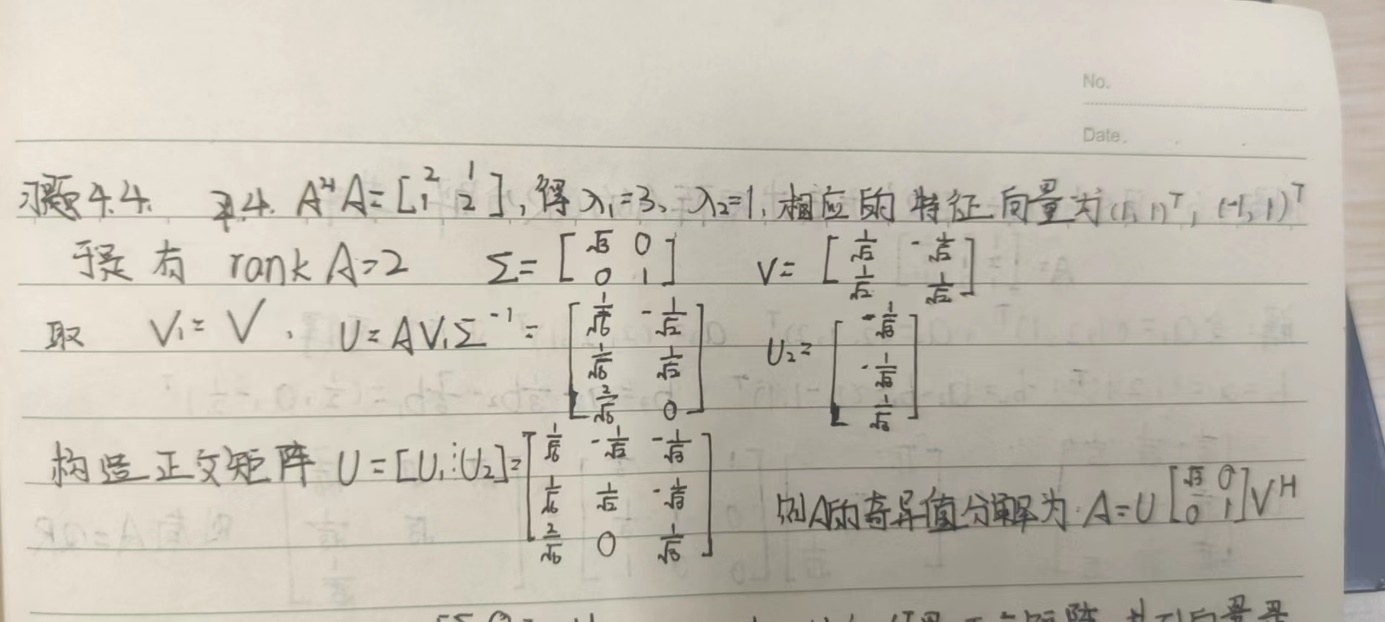 No.
Date.
习题4.4. 4. A^H A = [2 1; 1 2], 得 λ₁=3, λ₂=1, 相应的 特征向量为 (1, 1)^T, (-1, 1)^T
于是 有 rank A=2 Σ = [√3 0; 0 1] V = [1/√2 -1/√2; 1/√2 1/√2]
取 V₁ = V. U = A V₁ Σ^-1 = [1/√6 -1/√2; 1/√6 1/√2; 2/√6 0] U₂ = [-1/√3; -1/√3; 1/√3]
构造正交矩阵 U = [U₁⋮U₂] = [1/√6 -1/√2 -1/√3; 1/√6 1/√2 -1/√3; 2/√6 0 1/√3]
则A的奇异值分解为 A = U [√3 0; 0 1] V^H